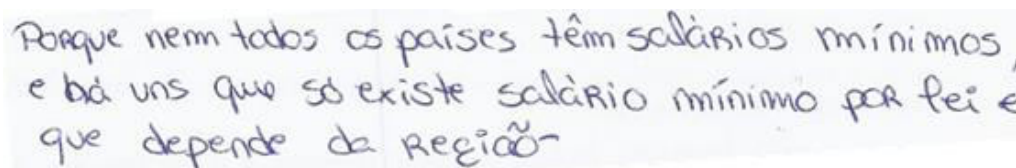 Porque nem todos os países têm salários mínimos,
e há uns que só existe salário mínimo por lei e
que depende da região-